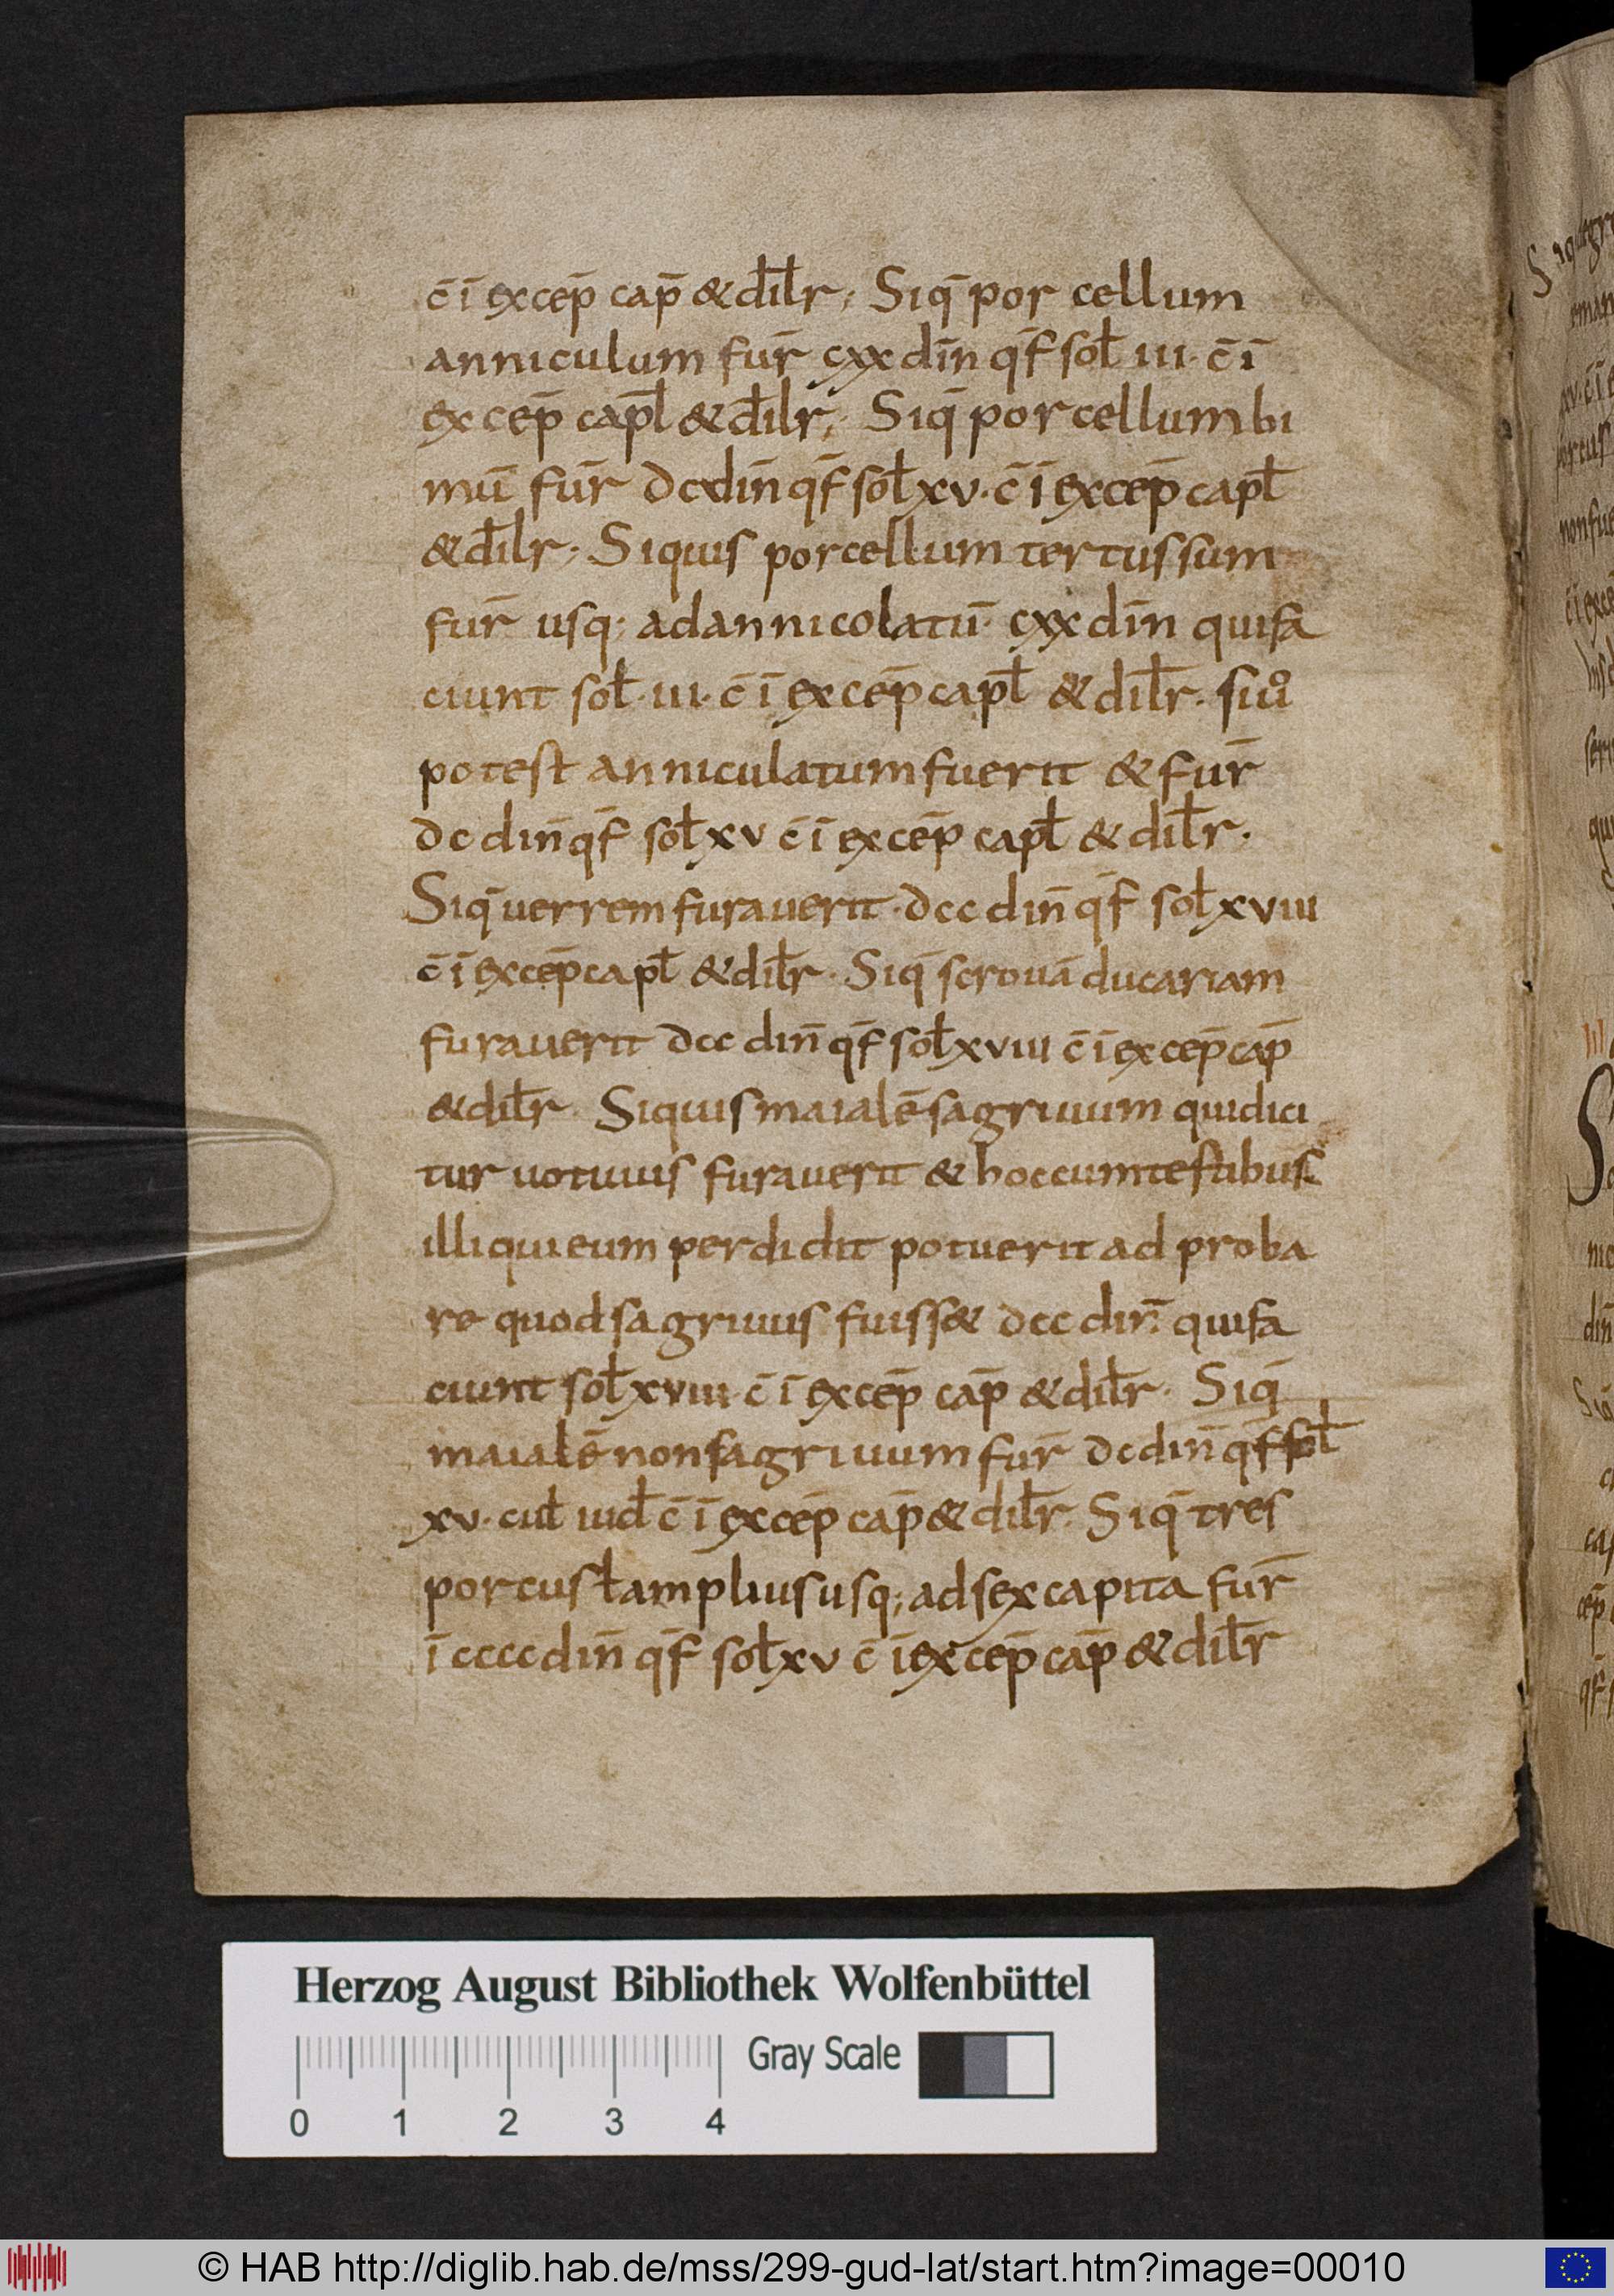 c̄ ī excep̄ cap̄ & dil̄r; Siq̄ por cellum
anniculum fur̄ cxx din̄ qf̄ sol̄ iii· c̄ ī
excep̄ capl̄ & dil̄r; Siq̄ porcellum bi
mū fur̄ dc din̄ qf̄ sol̄ xv· c̄ ī excep̄ capl̄
& dil̄r· Siquis porcellum tertussum
fur̄ usq; ad annicolatū· cxx din̄ qui fa
ciunt sol̄· iii· c̄ ī excep̄ capl̄ & dil̄r· siuͦ
potest anniculatum fuerit & fur̄
dc din̄ qf̄ sol̄ xv c̄ ī excep̄ capl̄ & dil̄r·
Siq̄ uerrem furauerit· dcc din̄ qf̄ sol̄ xviii
c̄ ī excep̄ capl̄ & dil̄r· Siq̄ scrouā ducariam
furauerit dcc din̄ qf̄ sol̄ xviii c̄ ī excep̄ cap̄
& dil̄r· Siquis maialē sagriuum qui dici
tur uotiuus furauerit & hoc cum testibus
illi qui eum perdidit potuerit ad proba
re quod sagriuus fuiss& dcc din̄ qui fa
ciunt sol̄ xviii· c̄ ī excep̄ cap̄ & dil̄r· Siq̄
maialē non sagriuum fur̄ dc din̄ qf̄ sol̄
xv· cul̄ iud̄ c̄ ī excep̄ cap̄ & dil̄r· Siq̄ tres
porcus ł amplius usq; ad sex capita fur̄
ī cccc din̄ qf̄ sol̄ xv c̄ ī excep̄ cap̄ & dil̄r
Herzog August Bibliothek Wolfenbüttel
Gray Scale
0 1 2 3 4
© HAB http://diglib.hab.de/mss/299-gud-lat/start.htm?image=00010